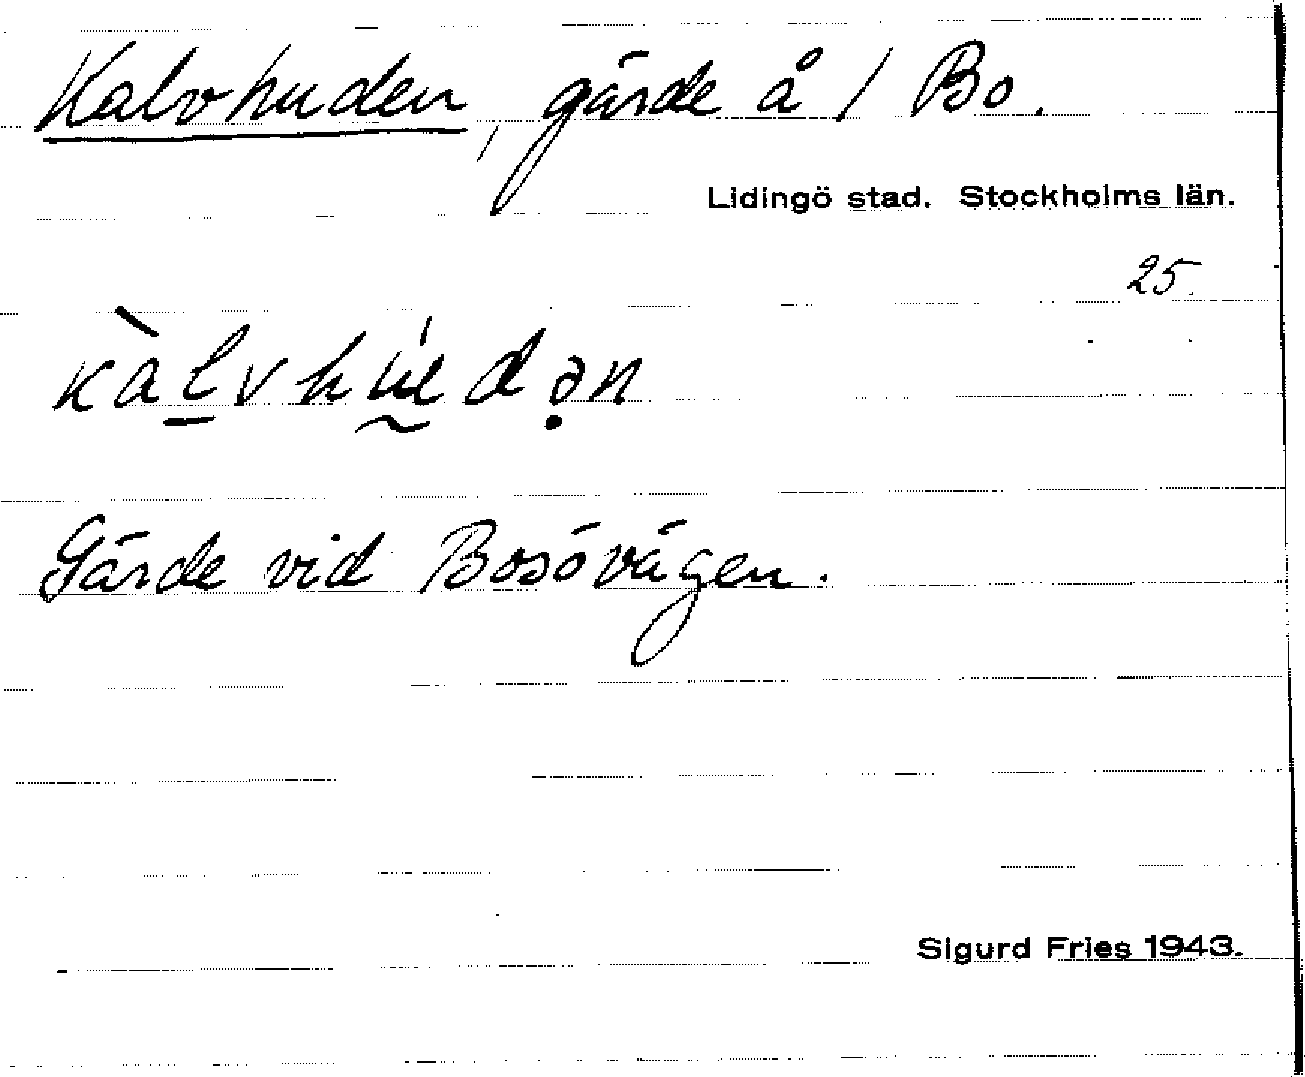 Kalvhuden, gärde å 1 Bo.
Lidingö stad. Stockholms län.
25.
kàlvhúdən
Gärde vid Bosövägen.
Sigurd Fries 1943.